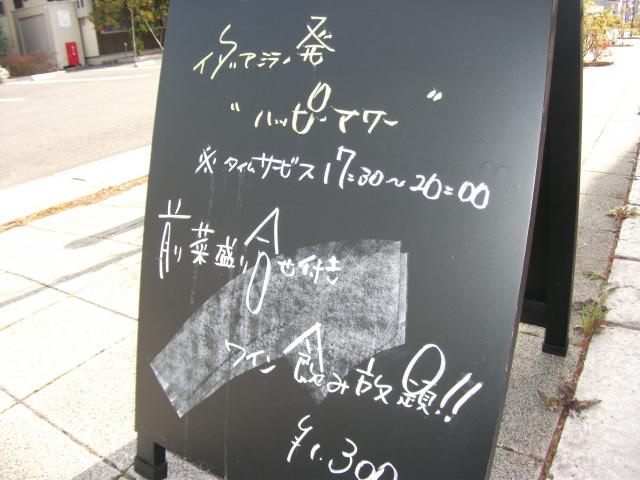 イタリアミラノ発
"ハッピーアワー"
※タイムサービス17:30～20:00
前菜盛り合せ付き
ワイン飲み放題!!
¥1.300